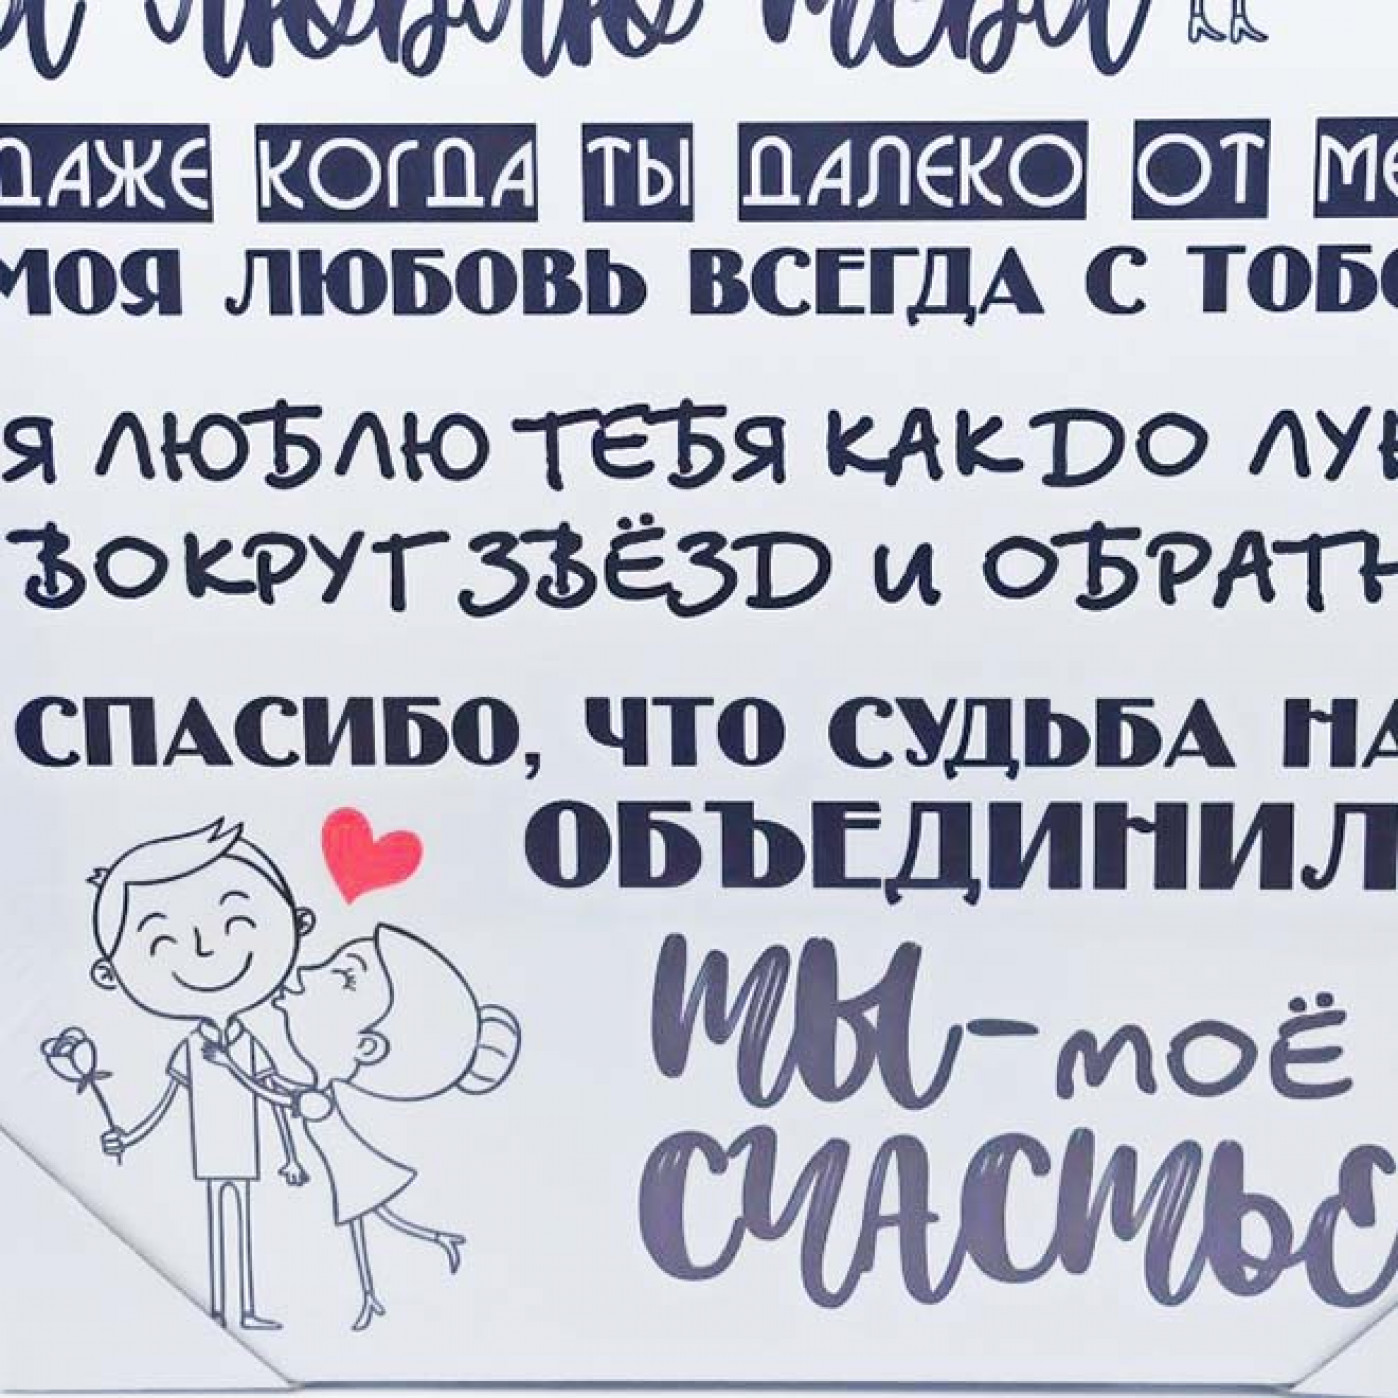 люблю тебя
ДАЖЕ КОГДА ТЫ ДАЛЕКО ОТ МЕ
МОЯ ЛЮБОВЬ ВСЕГДА С ТОБО
Я ЛЮБЛЮ ТЕБЯ КАК ДО ЛУН
ВОКРУГ ЗВЁЗД И ОБРАТН
СПАСИБО, ЧТО СУДЬБА НА
ОБЪЕДИНИЛ
ты - моё
счастье